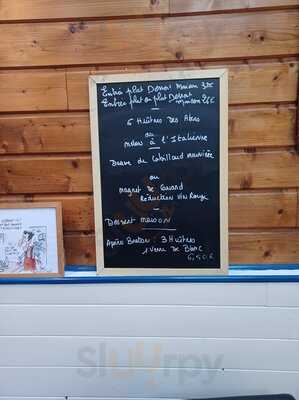 Entrée plat Dessert Maison 30€
Entrée plat ou plat Dessert
maison 26€
6 Huîtres des Abers
ou
melon à l'Italienne
de Cabillaud
ou
magret de Canard
Réduction Vin Rouge
Dessert maison
Apéro Breton: 3 Huîtres
1 verre de Blanc
6,50€
sluurpy